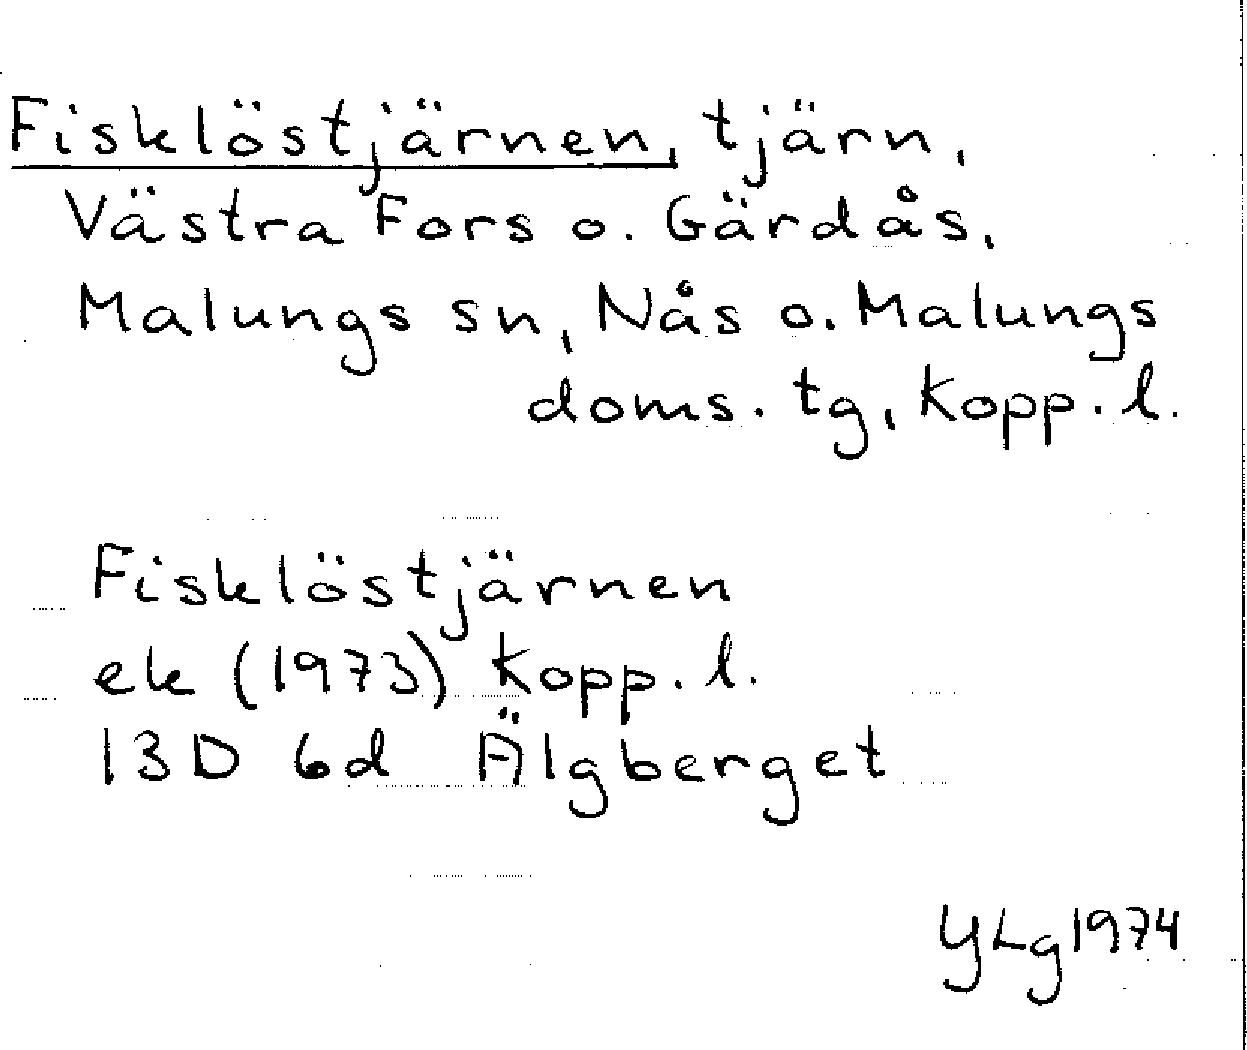 Fisklöstjärnen, tjärn,
Västra Fors o. Gärdås,
Malungs sn, Nås o. Malungs
doms. tg, Kopp. l.
Fisklöstjärnen
ek (1973) Kopp. l.
13D 6d Älgberget
YLg 1974